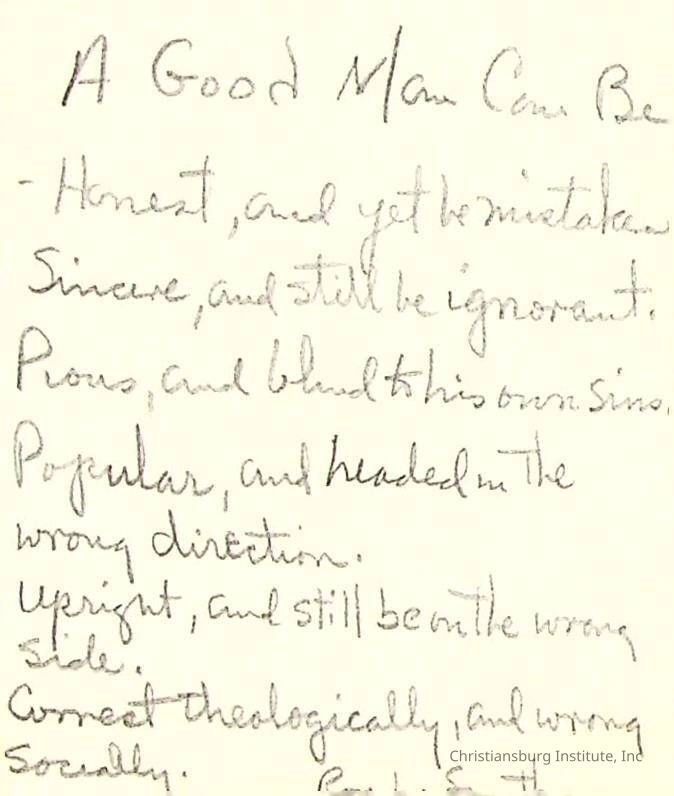 A Good Man Can Be
- Honest, and yet be mistaken
Sincere, and still be ignorant.
Pious, and blind to his own sins.
Popular, and headed in the
wrong direction.
Upright, and still be on the wrong
side.
Correct theologically, and wrong
Socially.
Christiansburg Institute, Inc